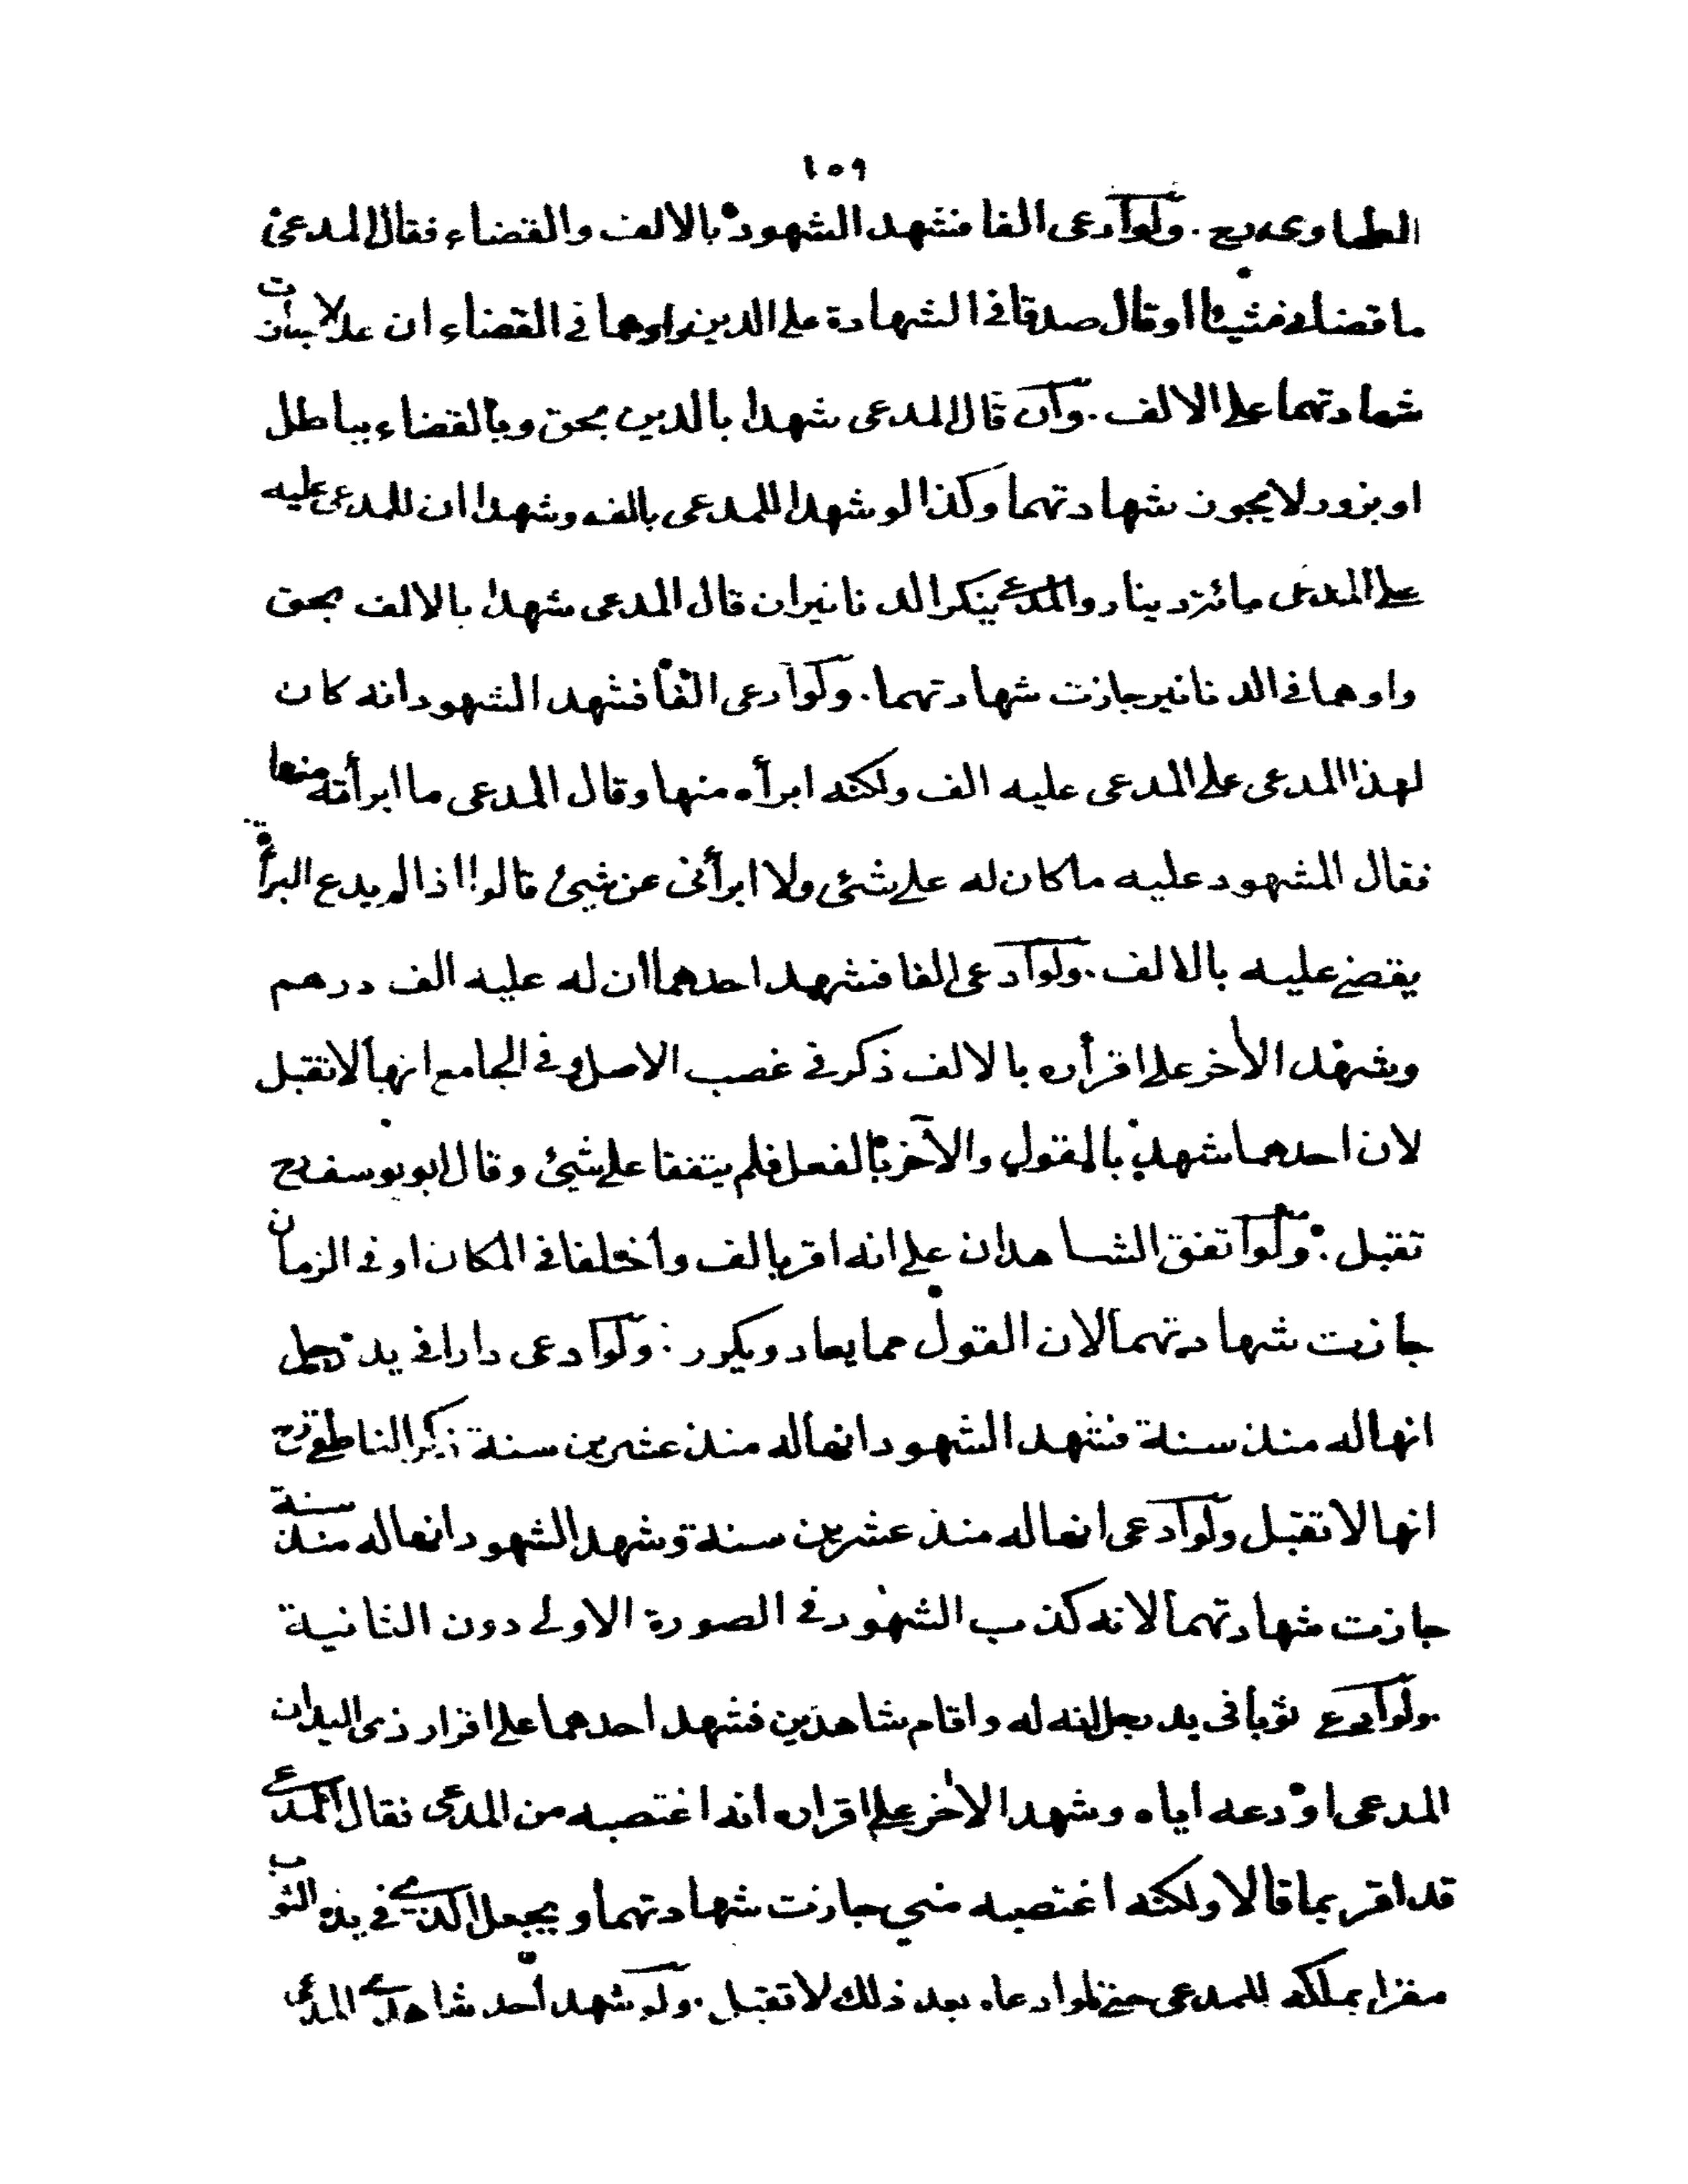 ١٥٩
الطحاوى رح . ولو ادعى الفا فشهد الشهود بالالف والقضاء فقال المدعى
ما قضانى شيئا او قال صدقا فى الشهادة على الدين واوهما فى القضاء ان عدلا جازت
شهادتهما على الالف . وان قال المدعى شهدا بالدين بحق وبالقضاء بباطل
او بزور لا يجوز شهادتهما وكذا لو شهدا للمدعى بالف وشهدا ان للمدعى عليه
على المدعى مائة دينار والمدعى ينكر الدنانير ان قال المدعى شهدا بالالف بحق
واوهما فى الدنانير جازت شهادتهما . ولو ادعى الفا فشهد الشهود انه كان
لهذا المدعى على المدعى عليه الف ولكنه ابرأه منها وقال المدعى ما ابرأته منها
فقال المشهود عليه ما كان له على شئ ولا ابرأنى عن شيئ قالوا اذا لم يدع البرأة
يقضى عليه بالالف . ولو ادعى الفا فشهد احدهما ان له عليه الف درهم
وشهد الأخر على اقراره بالالف ذكر فى غصب الاصل وفى الجامع انها لا تقبل
لان احدهما شهد بالقول والآخر بالفعل فلم يتفقا على شيئ وقال ابو يوسف رح
تقبل : ولو اتفق الشاهدان على انه اقر بالف واختلفا فى المكان او فى الزمان
جازت شهادتهما لان القول مما يعاد ويكرر : ولو ادعى دارا فى يد رجل
انها له منذ سنة فشهد الشهود انها له منذ عشرين سنة ذكر الناطفى رح
انها لا تقبل ولو ادعى انها له منذ عشرين سنة وشهد الشهود انها له منذ سنة
جازت شهادتهما لانه كذب الشهود فى الصورة الاولى دون الثانية
. ولو ادعى ثوبا فى يد رجل انه له واقام شاهدين فشهد احدهما على اقرار ذى اليد ان
المدعى اودعه اياه وشهد الأخر على اقراره انه اغتصبه من المدعى فقال المدعى
قد اقر بما قالا ولكنه اغتصبه منى جازت شهادتهما ويجعل الذى فى يده الثوب
مقرا بملكه للمدعى حتى لو ادعاه بعد ذلك لا تقبل . ولو شهد احد شاهدى المدعى